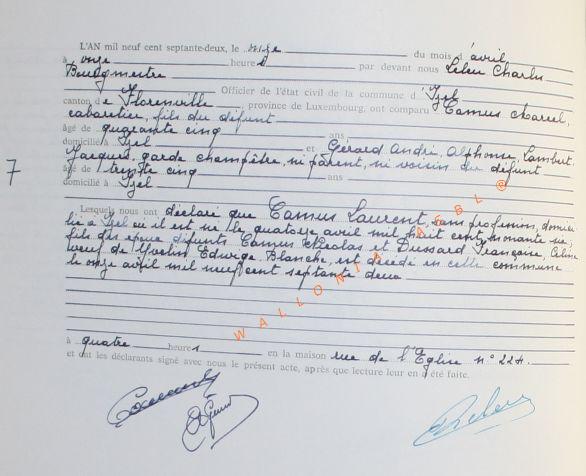 L'AN mil neuf cent septante-deux, le onze du mois d'avril
à onze heures par devant nous Leleu Charles
Bourgmestre
Officier de l'état civil de la commune d'Izel
canton de Florenville, province de Luxembourg, ont comparu Camus Marcel,
cabaretier, fils du défunt
âgé de quarante cinq ans
domicilié à Izel et Gérard André, Alphonse, Lambert
7 Jacques, garde champêtre, ni parent, ni voisin du défunt
âgé de trente cinq ans
domicilié à Izel
Lesquels nous ont déclaré que Camus Laurent, sans profession, domici
lié à Izel où il est né le quatorze avril mil huit cent nonante ne,
fils des époux défunts Camus Nicolas et Dussard Françoise, Céline
veuf de Yvelin Edwige Blanche, est décédé en cette commune
le onze avril mil neuf cent septante deux
WALLONIA ASBL ©
à quatre heures en la maison rue de l'Eglise n° 224.
et ont les déclarants signé avec nous le présent acte, après que lecture leur en a été faite.